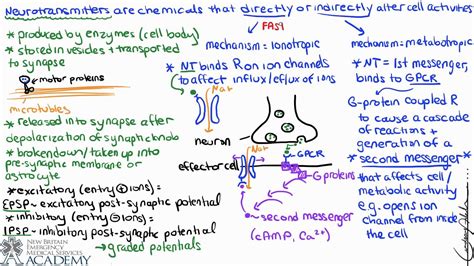 Neurotransmitters are chemicals that directly or indirectly alter cell activities
* produced by enzymes (cell body)
* stored in vesicles + transported to synapse
motor proteins
microtubles
* released into synapse after depolarization of synaptic knob
* brokendown/taken up into pre-synaptic membrane or astrocyte
* excitatory (entry ⊕ ions):
EPSP ~ excitatory post-synaptic potential
* inhibitory (entry ⊖ ions):
IPSP ~ inhibitory post-synaptic potential
→ graded potentials
NEW BRITAIN
EMERGENCY
MEDICAL SERVICES
ACADEMY
FAST
mechanism = ionotropic
* NT binds R on ion channels
to affect influx/eflux of ions
Na+
neuron
effector cell
Na+
GPCR
G proteins
second messenger
(cAMP, Ca2+)
mechanism = metabotropic
* NT = 1st messenger,
binds to GPCR
G-protein coupled R
to cause a cascade
of reactions +
generation of a
* second messenger *
that affects cell/
metabolic activity
e.g. opens ion
channel from inside
the cell